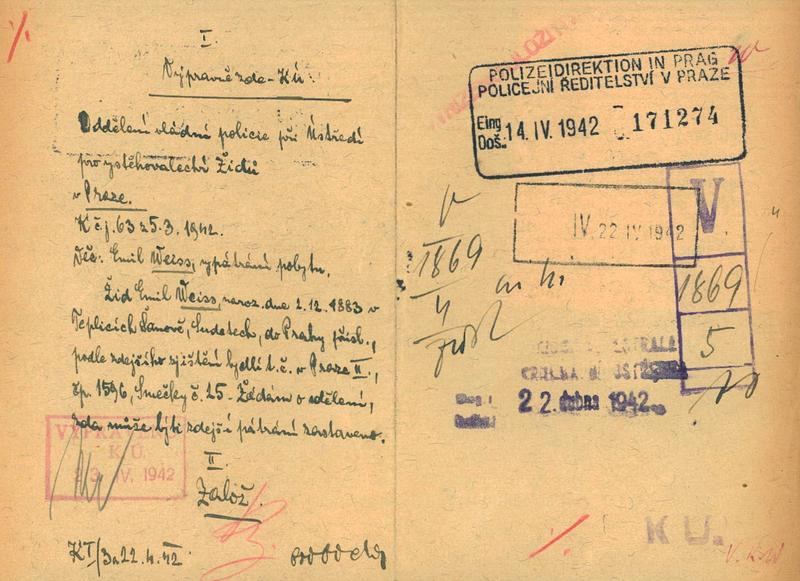 I.
Výpravně zde - KÚ.
Oddělení vládní policie při Ústředí
pro vystěhovalectví Židů
v Praze.
K čj. 63 z 5.3. 1942.
Věc: Emil Weiss, vypátrání pobytu.
Žid Emil Weiss, naroz. dne 2.12. 1883 v
Teplicích Šanově, Sudetech, do Prahy přísl.,
podle zdejšího zjištění bydlí t.č. v Praze II.,
čp. 1596, Smečky č. 25. - Žádám o sdělení,
zda může býti zdejší pátrání zastaveno.
VYPRAVENO
K.Ú.
23. IV. 1942
II.
Založ.
22.4.42
POLIZEIDIREKTION IN PRAG
POLICEJNÍ ŘEDITELSTVÍ V PRAZE
Eing. Doš. 14. IV. 1942 171274
IV. 22 IV 1942
V.
1869
5
1869
4
22. dubna 1942
K Ú.